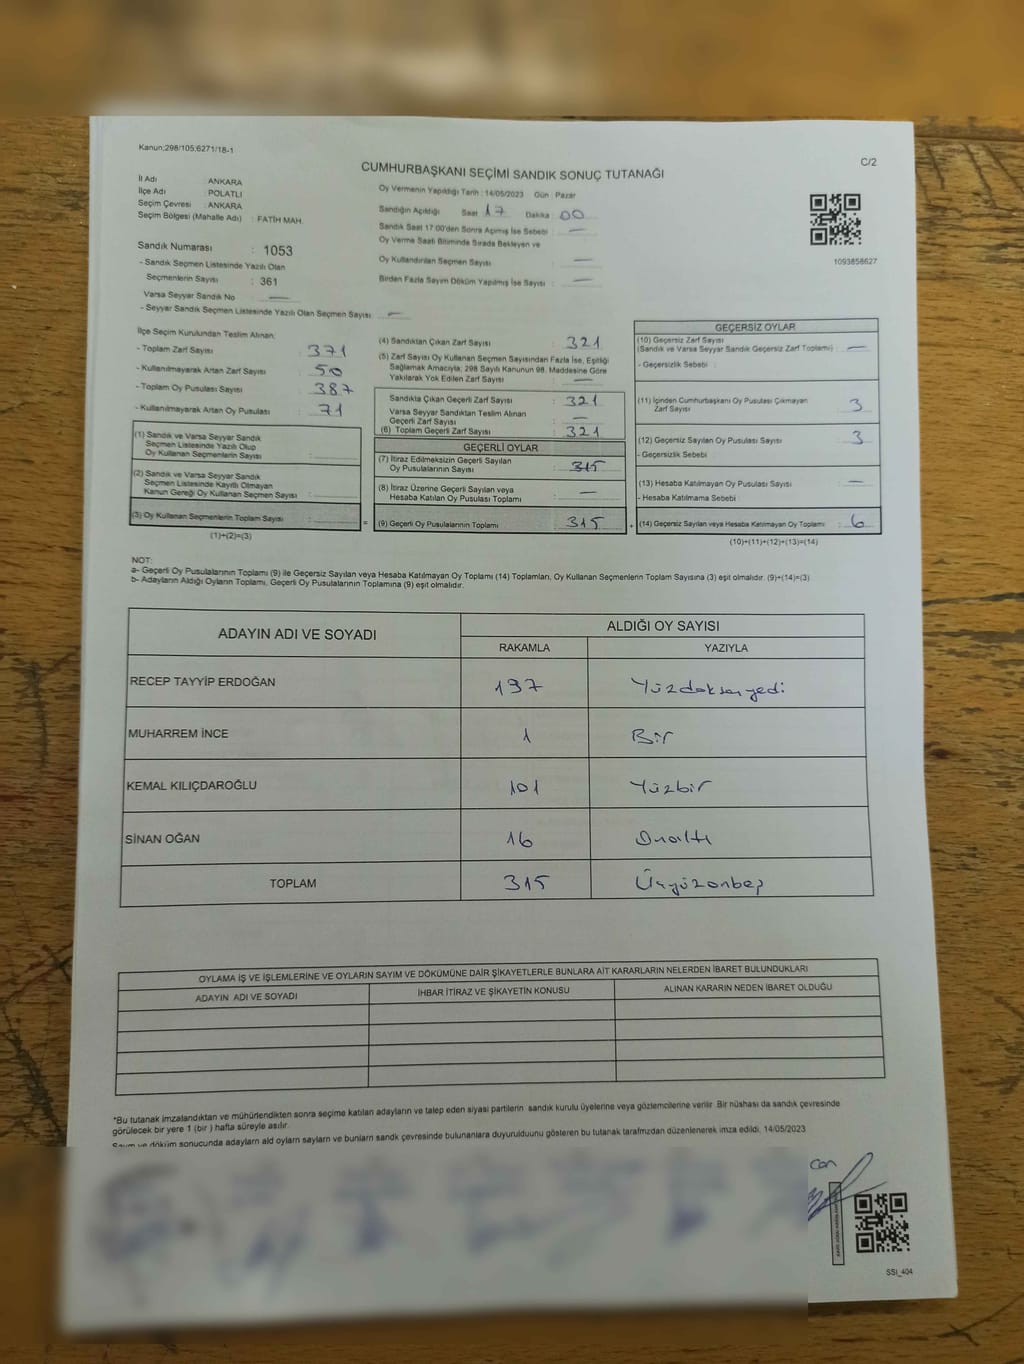 Kanun;298/105;6271/18-1
C/2
CUMHURBAŞKANI SEÇİMİ SANDIK SONUÇ TUTANAĞI
İl Adı : ANKARA
İlçe Adı : POLATLI
Seçim Çevresi : ANKARA
Seçim Bölgesi (Mahalle Adı) : FATİH MAH.
Sandık Numarası : 1053
- Sandık Seçmen Listesinde Yazılı Olan
Seçmenlerin Sayısı : 361
Varsa Seyyar Sandık No —
- Seyyar Sandık Seçmen Listesinde Yazılı Olan Seçmen Sayısı: —
Oy Vermenin Yapıldığı Tarih : 14/05/2023 Gün : Pazar
Sandığın Açıldığı Saat 17 Dakika : 00
Sandık Saat 17:00'den Sonra Açımış İse Sebebi : —
Oy Verme Saati Bitiminde Sırada Bekleyen ve
Oy Kullandırılan Seçmen Sayısı : —
Birden Fazla Sayım Döküm Yapılmış İse Sayısı : —
1093858627
İlçe Seçim Kurulundan Teslim Alınan:
- Toplam Zarf Sayısı : 371
- Kullanılmayarak Artan Zarf Sayısı : 50
- Toplam Oy Pusulası Sayısı : 387
- Kullanılmayarak Artan Oy Pusulası : 71
(1) Sandık ve Varsa Seyyar Sandık
Seçmen Listesinde Yazılı Olup
Oy Kullanan Seçmenlerin Sayısı :
(2) Sandık ve Varsa Seyyar Sandık
Seçmen Listesinde Kayıtlı Olmayan
Kanun Gereği Oy Kullanan Seçmen Sayısı :
(3) Oy Kullanan Seçmenlerin Toplam Sayısı :
(1)+(2)=(3)
(4) Sandıktan Çıkan Zarf Sayısı : 321
(5) Zarf Sayısı Oy Kullanan Seçmen Sayısından Fazla İse, Eşitliği
Sağlamak Amacıyla; 298 Sayılı Kanunun 98. Maddesine Göre
Yakılarak Yok Edilen Zarf Sayısı : —
Sandıkta Çıkan Geçerli Zarf Sayısı : 321
Varsa Seyyar Sandıktan Teslim Alınan
Geçerli Zarf Sayısı : —
(6) Toplam Geçerli Zarf Sayısı : 321
GEÇERLİ OYLAR
(7) İtiraz Edilmeksizin Geçerli Sayılan
Oy Pusulalarının Sayısı : 315
(8) İtiraz Üzerine Geçerli Sayılan veya
Hesaba Katılan Oy Pusulası Toplamı : —
= (9) Geçerli Oy Pusulalarının Toplamı : 315 +
GEÇERSİZ OYLAR
(10) Geçersiz Zarf Sayısı
(Sandık ve Varsa Seyyar Sandık Geçersiz Zarf Toplamı) : —
- Geçersizlik Sebebi :
(11) İçinden Cumhurbaşkanı Oy Pusulası Çıkmayan
Zarf Sayısı : 3
(12) Geçersiz Sayılan Oy Pusulası Sayısı : 3
- Geçersizlik Sebebi
(13) Hesaba Katılmayan Oy Pusulası Sayısı : —
- Hesaba Katılmama Sebebi
(14) Geçersiz Sayılan veya Hesaba Katılmayan Oy Toplamı : 6
(10)+(11)+(12)+(13)=(14)
NOT:
a- Geçerli Oy Pusulalarının Toplamı (9) ile Geçersiz Sayılan veya Hesaba Katılmayan Oy Toplamı (14) Toplamları, Oy Kullanan Seçmenlerin Toplam Sayısına (3) eşit olmalıdır. (9)+(14)=(3)
b- Adayların Aldığı Oyların Toplamı, Geçerli Oy Pusulalarının Toplamına (9) eşit olmalıdır.
ADAYIN ADI VE SOYADI ALDIĞI OY SAYISI
RAKAMLA YAZIYLA
RECEP TAYYİP ERDOĞAN 197 Yüzdoksanyedi
MUHARREM İNCE 1 Bir
KEMAL KILIÇDAROĞLU 101 Yüzbir
SİNAN OĞAN 16 Onaltı
TOPLAM 315 Üçyüzonbeş
OYLAMA İŞ VE İŞLEMLERİNE VE OYLARIN SAYIM VE DÖKÜMÜNE DAİR ŞİKAYETLERLE BUNLARA AİT KARARLARIN NELERDEN İBARET BULUNDUKLARI
ADAYIN ADI VE SOYADI İHBAR İTİRAZ VE ŞİKAYETİN KONUSU ALINAN KARARIN NEDEN İBARET OLDUĞU
*Bu tutanak imzalandıktan ve mühürlendikten sonra seçime katılan adayların ve talep eden siyasi partilerin sandık kurulu üyelerine veya gözlemcilerine verilir. Bir nüshası da sandık çevresinde
görülecek bir yere 1 (bir ) hafta süreyle asılır.
Sayım ve döküm sonucunda adayların ald oyların sayların ve bunların sandk çevresinde bulunanlara duyurulduunu gösteren bu tutanak tarafmzdan düzenlenerek imza edildi. 14/05/2023
can
SSI_404